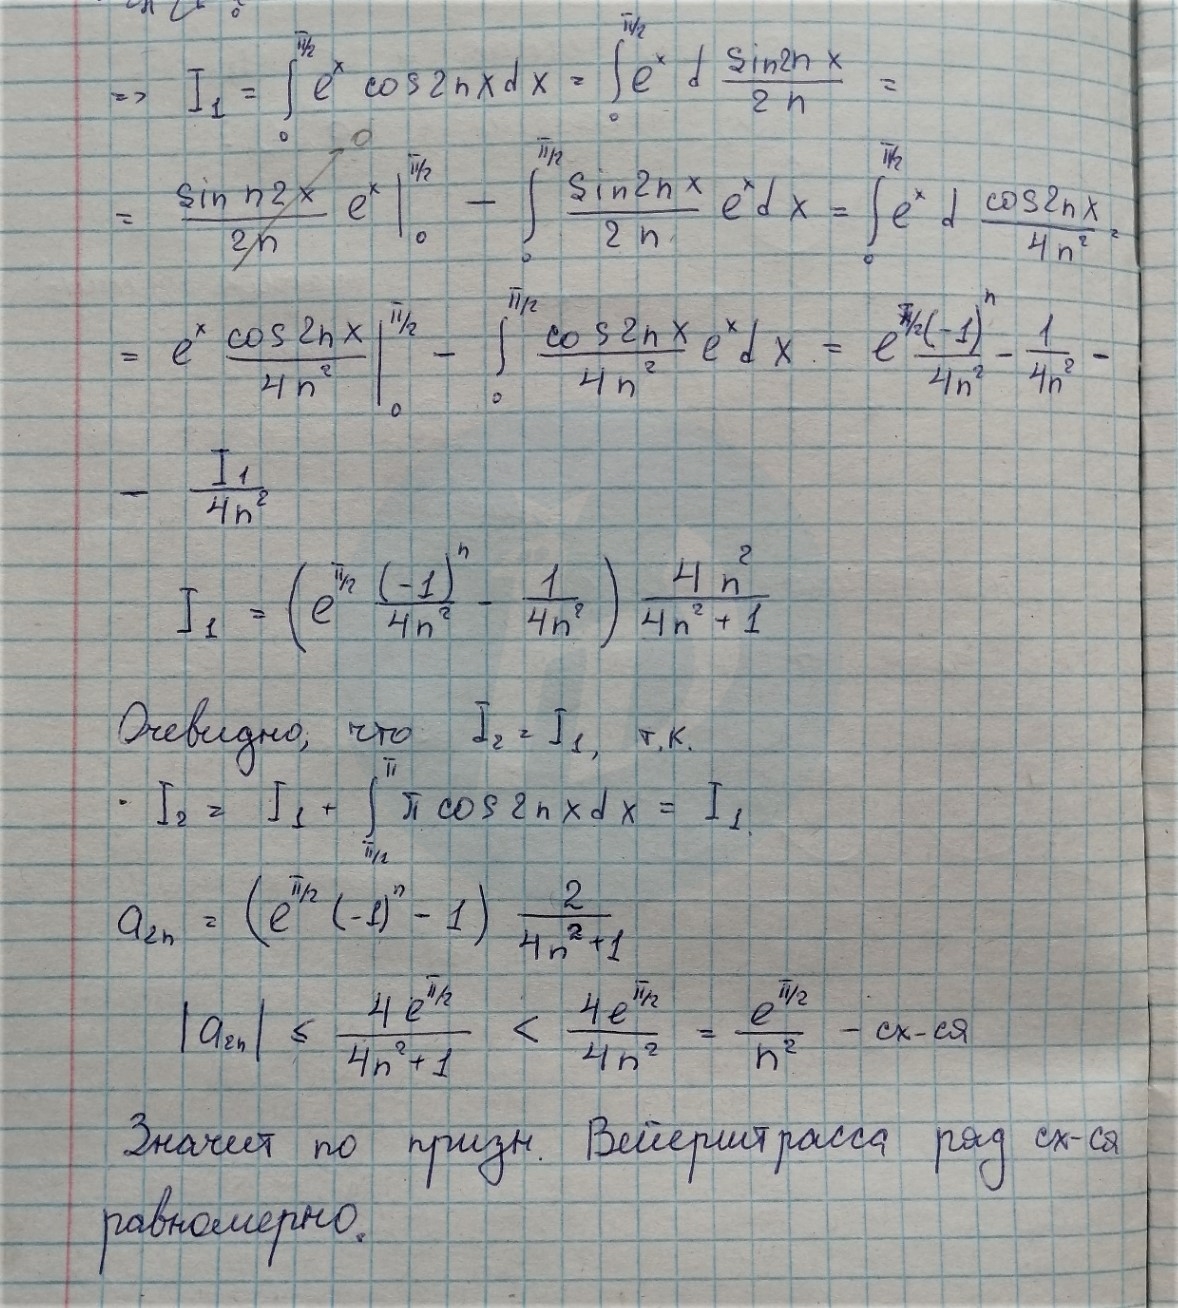 => I₁ = ∫₀^{π/2} eˣ cos2nx dx = ∫₀^{π/2} eˣ d (sin2nx)/(2n) =
= (sin n2x)/(2n) eˣ |₀^{π/2} → 0 − ∫₀^{π/2} (sin2nx)/(2n) eˣ dx = ∫₀^{π/2} eˣ d (cos2nx)/(4n²) =
= eˣ (cos2nx)/(4n²) |₀^{π/2} − ∫₀^{π/2} (cos2nx)/(4n²) eˣ dx = e^{π/2} (-1)ⁿ/(4n²) − 1/(4n²) −
− I₁/(4n²)
I₁ = (e^{π/2} (-1)ⁿ/(4n²) − 1/(4n²)) 4n²/(4n²+1)
Очевидно, что I₂ = I₁, т.к.
· I₂ = I₁ + ∫_{π/2}^{π} π cos2nx dx = I₁.
a₂ₙ = (e^{π/2} (-1)ⁿ − 1) 2/(4n²+1)
|a₂ₙ| ≤ 4e^{π/2}/(4n²+1) < 4e^{π/2}/(4n²) = e^{π/2}/n² − сх-ся
Значит по призн. Вейерштрасса ряд сх-ся
равномерно.